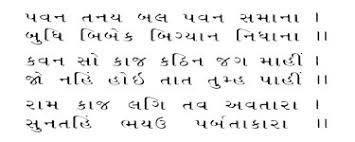 પવન તનય બલ પવન સમાના ।
બુધિ બિબેક બિગ્યાન નિધાના ॥
કવન સો કાજ કઠિન જગ માહીં ।
જો નહિં હોઇ તાત તુમ્હ પાહીં ॥
રામ કાજ લગિ તવ અવતારા ।
સુનતહિં ભયઉ પર્બતાકારા ॥